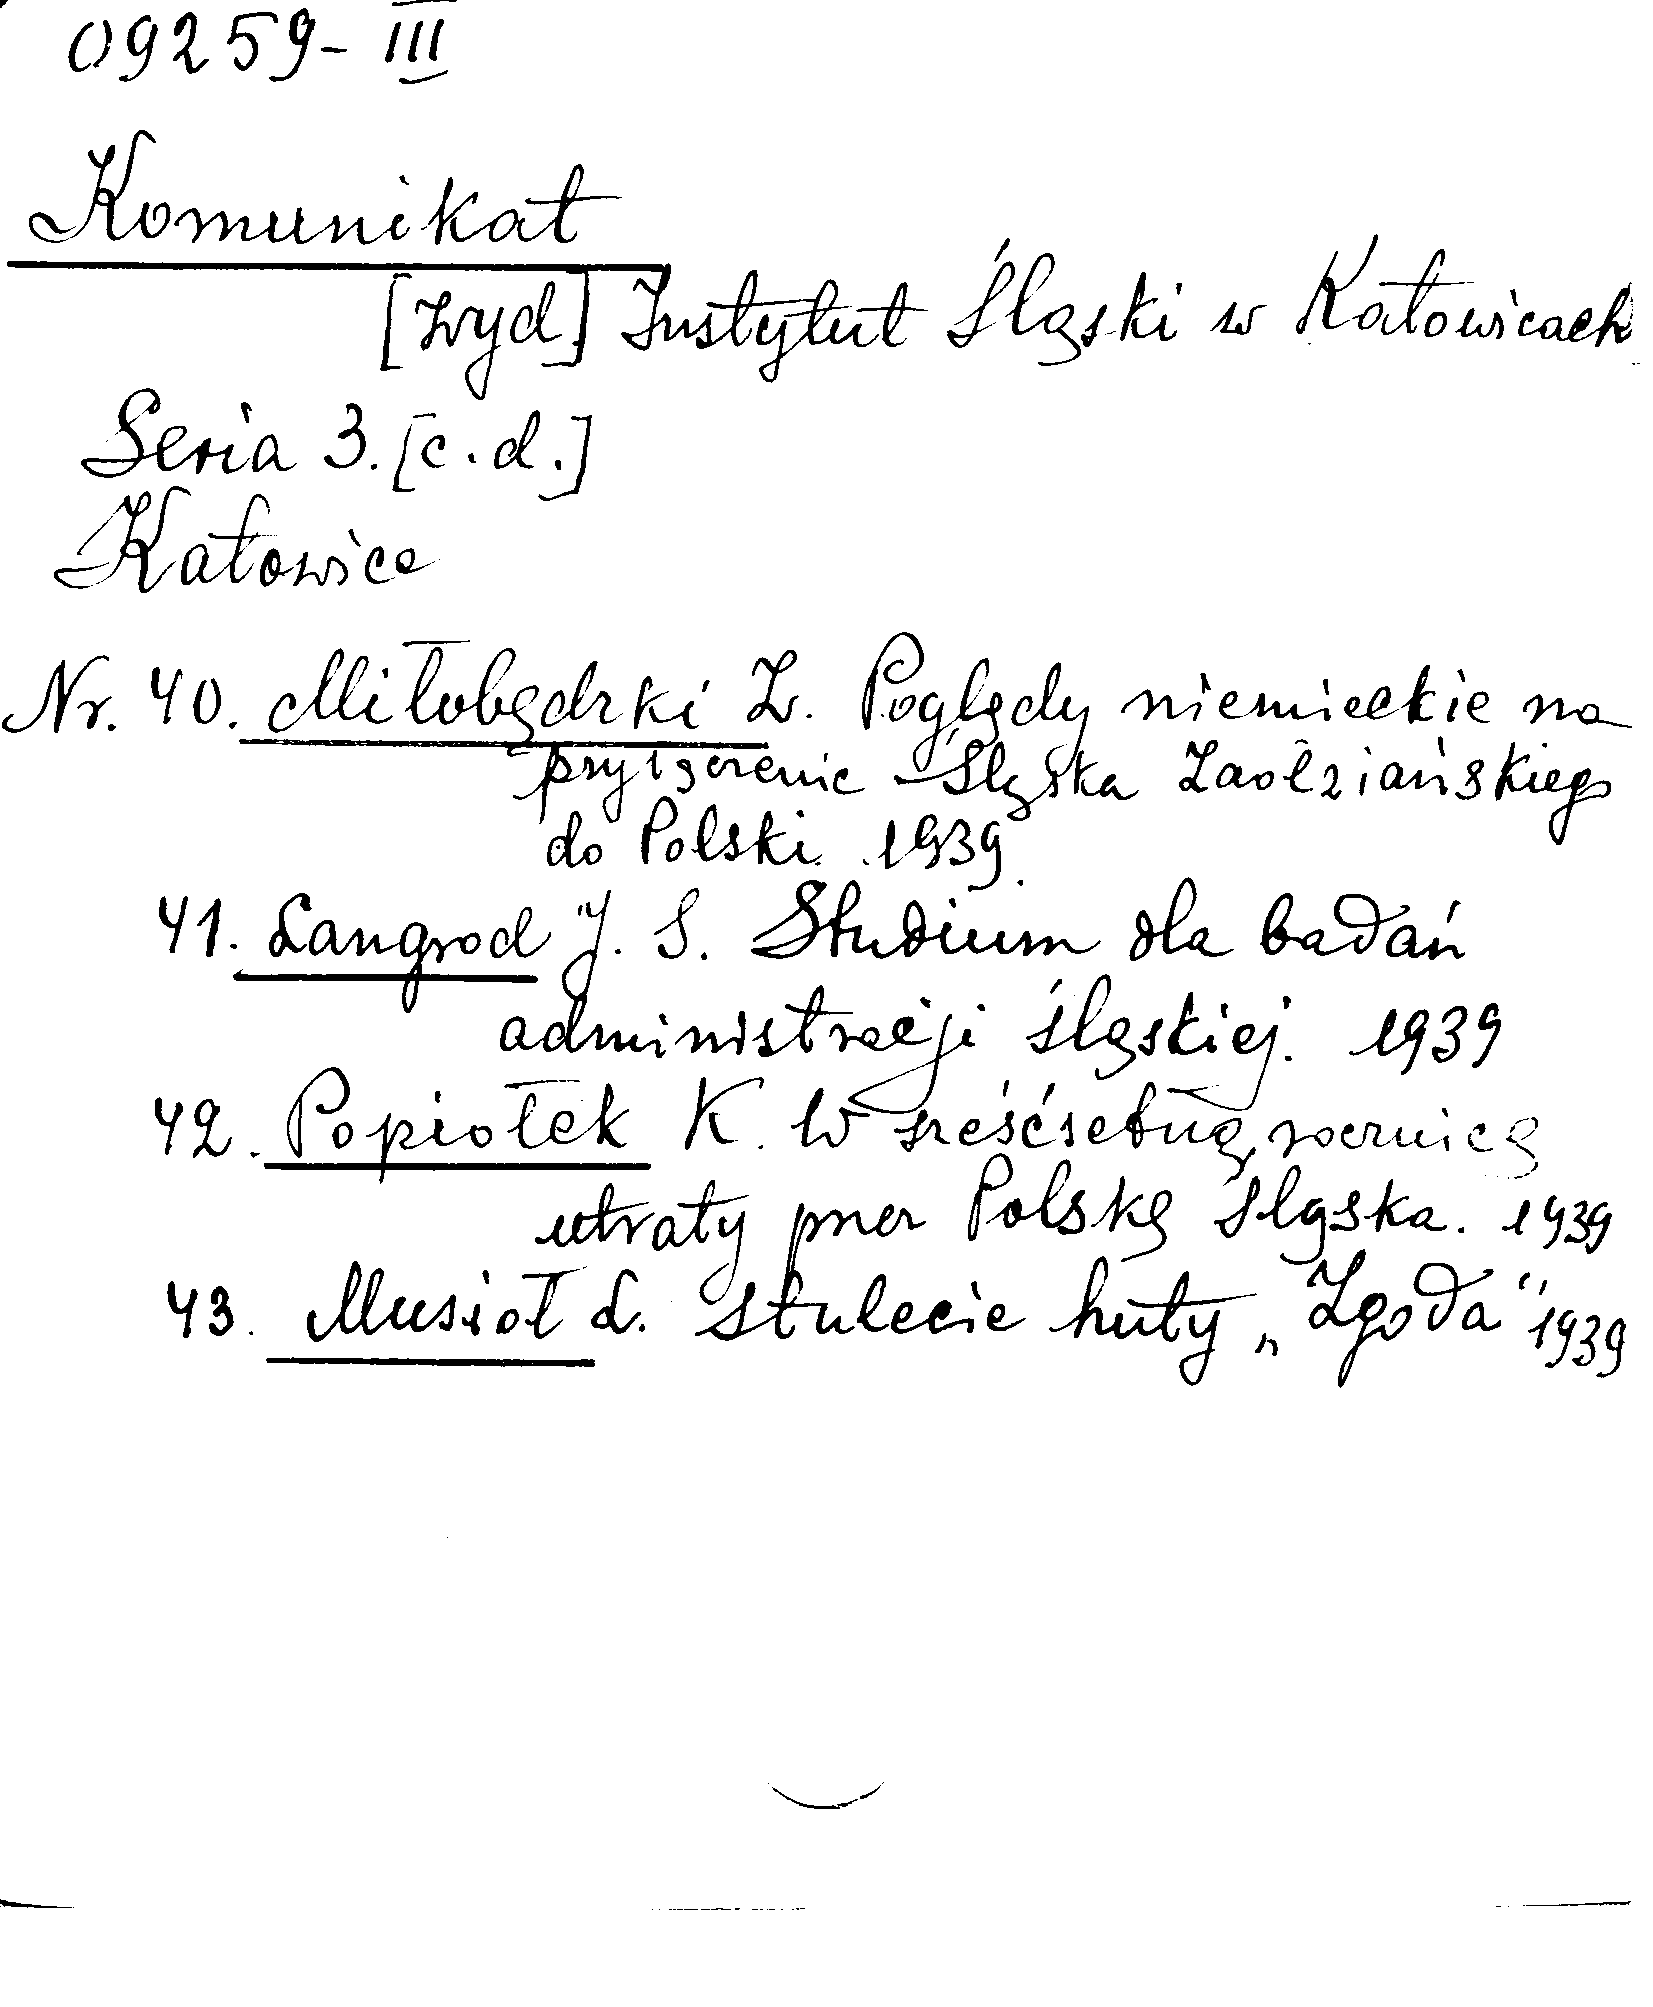 09259-III
Komunikat
[wyd] Instytut Śląski w Katowicach
Seria 3. [c.d.]
Katowice
Nr. 40. Miłobędzki Z. Poglądy niemieckie na
przyłączenie Śląska Zaolziańskiego
do Polski. 1939.
41. Langrod J. S. Studium dla badań
administracji śląskiej. 1939
42. Popiołek K. W sześćsetną rocznicę
utraty przez Polskę Śląska. 1939
43. Musioł L. Stulecie huty „Zgoda" 1939